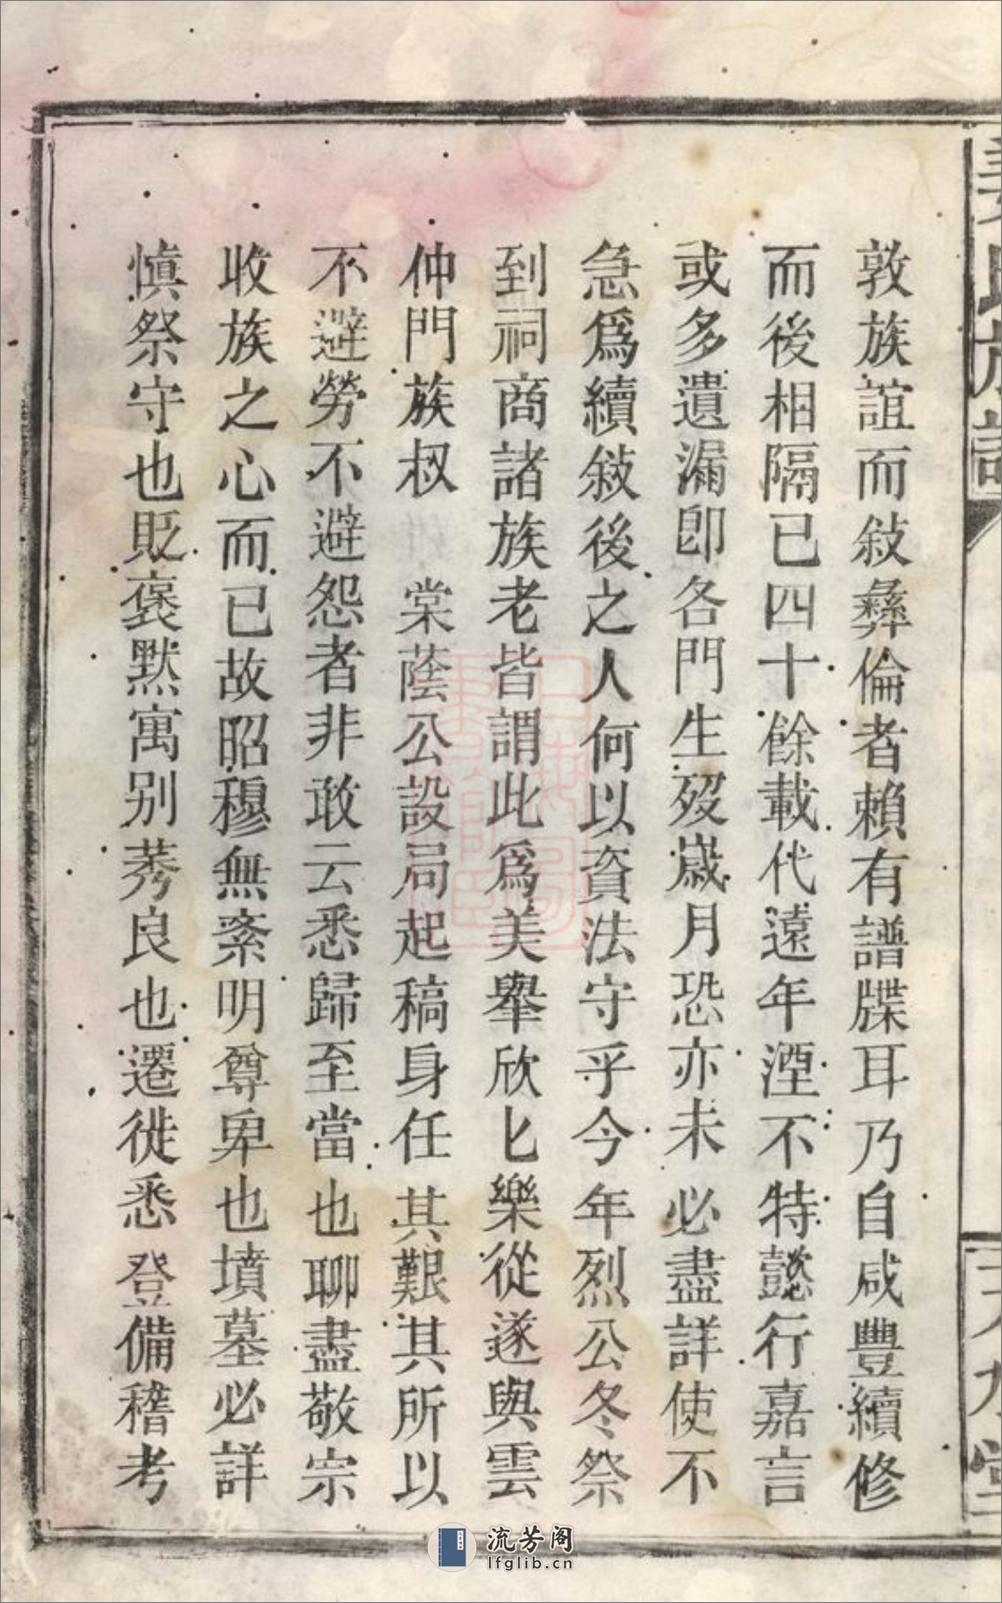 敦族誼而敍彝倫者賴有譜牒耳乃自咸豐續修
而後相隔已四十餘載代遠年湮不特懿行嘉言
或多遺漏卽各門生歿歲月恐亦未必盡詳使不
急爲續敍後之人何以資法守乎今年烈公冬祭
到祠商諸族老皆謂此爲美舉欣匕樂從遂與雲
仲門族叔 棠蔭公設局起稿身任其艱其所以
不避勞不避怨者非敢云悉歸至當也聊盡敬宗
收族之心而已故昭穆無紊明尊卑也墳墓必詳
慎祭守也貶褒默寓别莠良也遷徙悉登備稽考
流芳阁
lfglib.cn